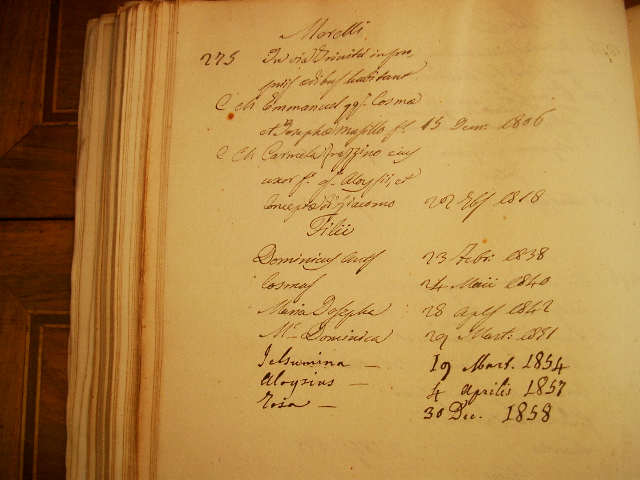 Morelli
275 In via Trinitis in pro-
priis ædibus habitant
C Ch Emmanuel qq. Cosmæ
et Josephæ Musillo f. 15 1806
C Ch Carmela Frezzino ejus
uxor f. q. Aloysii, et
Conceptæ Di Giacomo 1818
Filii
Dominicus 23 1838
Cosmas 24 Maii 1840
Maria Josepha 28 Apls 1842
Ma Dominica 29 Mart. 1851
Jelsumina — 19 Mart. 1854
Aloysius — 4 Aprilis 1857
Rosa — 30 Dec. 1858